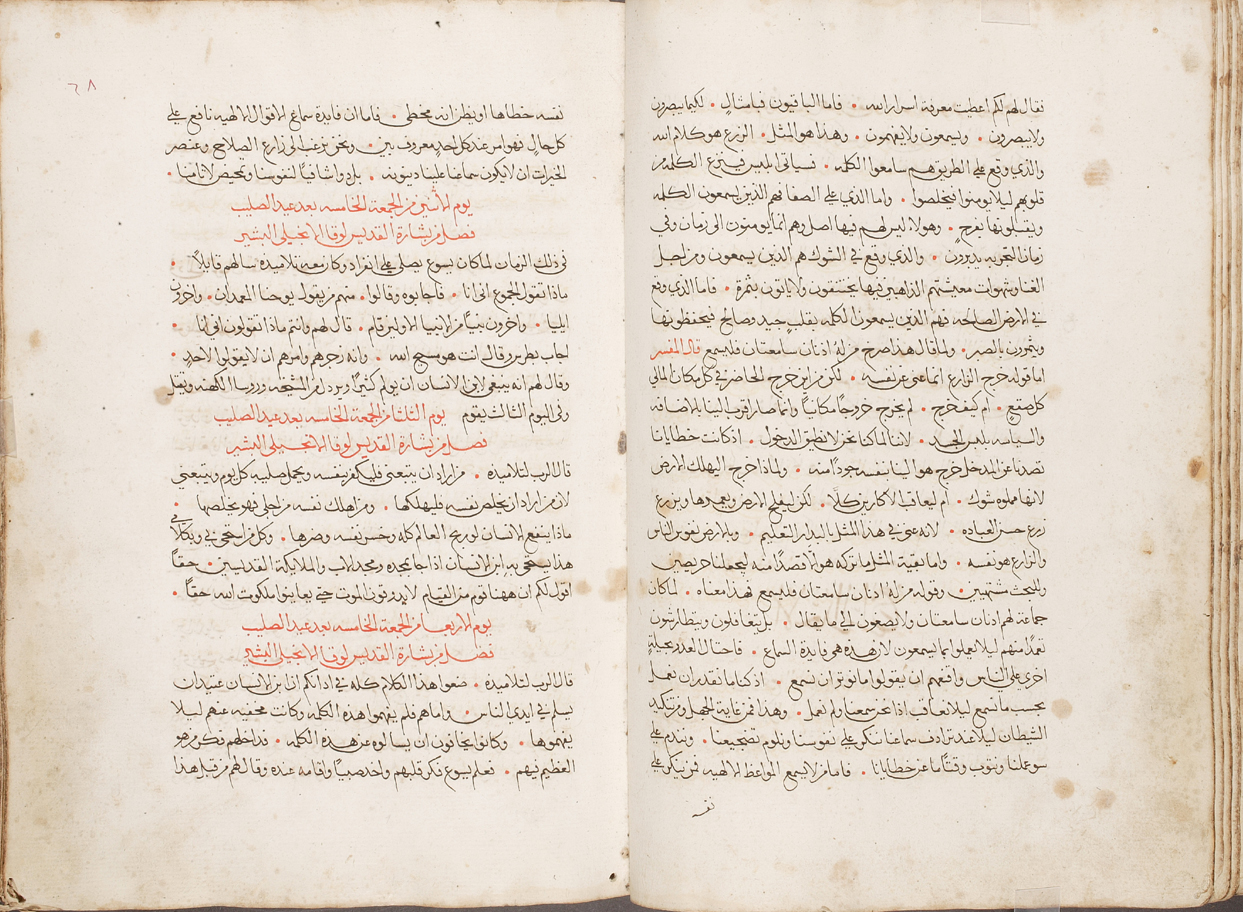 فقال لهم لكم اعطيت معرفة اسرار الله • فاما الباقيون فبامثال • لكيما يبصرون
ولا يبصرون • ويسمعون ولا يفهمون • وهذا هو المثل • الزرع هو كلام الله
والذي وقع على الطريق هم سامعوا الكلمه • فسياتي ابليس فينزع الكلمه من
قلوبهم ليلا يومنوا فيتخلصوا • واما الذي على الصفا فهم الذين يسمعون الكلمه
ويقبلونها بفرحٍ • وهولا ليس لهم فيها اصل وهم انما يومنون الى زمان وفي
زمان التجربه يزورون • والذي وقع في الشوك هم الذين يسمعون ومن اجل
الغنا وشهوات معيشتهم الذاهبين فيها يختنقون ولا ياتون بثمرة • فاما الذي وقع
في الارض الصالحه فهم الذين يسمعون الكلمه بقلبٍ جيد وصالح فيحفظونها
ويثمرون بالصبر • ولما قال هذا صرخ من له اذنان سامعتان فليسمع قال المفسر
اما قوله خرج الزارع انما عنى عن نفسه • لكن من اين خرج الحاضر في كل مكان المالي
كل صقعٍ • ام كيف خرج • لم يخرج خروجاً مكانياً وانما صار اقرب الينا بالاضافه
والسياسه بلبس الجسد • لاننا لما كنا نحن لا نطيق الدخول • اذ كانت خطايانا
تصدنا عن المدخل خرج هو الينا بنفسه جوداً منه • ولماذا خرج اليهلك الارض
لانها مملوه شوك • ام ليعاقب الاكارين كلّا • لكن ليفلح الارض ويعمرها ويزرع
زرع حسن العباده • لانه عنى في هذا المثل بالبدار التعليم • وبالارض نفوس الناس
والزارع هو نفسه • واما بقية المثل ما تركه هولا قصداً منه ليجعلنا حريصين
وللبحث مشتهيين • وقوله من له اذنان سامعتان فليسمع فهذا معناه • لما كان
جماعة لهم اذنان سامعتان ولا يصغون الى ما يقال • بل يتغافلون ويتطارشون
تعمداً منهم ليلا يعملوا بما يسمعون لان هذه هي فايدة السماع • فاحتال العدو بحيلةٍ
اخرى على الناس واقنعهم ان يقولوا ما نوثر ان نسمع • اذ كنا ما نقدر ان نعمل
بحسب ما نسمع ليلا نعاقب اذا نحن سمعنا ولم نعمل • وهذا فمن غاية الجهل ومن تنكيد
الشيطان ليلا عند ترادف سماعنا ننكر على نفوسنا ونلوم تضجيعنا • ونندم على
سو عملنا ونتوب وقتاً ما عن خطايانا • فاما من لا يسمع المواعظ الالهيه فمن ينكر على
نفسه
٦٨
نفسه خطاها او يظن انه مخطي • فاما ان فايدة سماع الاقوال الالهيه نافع على
كل حالٍ فهو امر عند كل احدٍ معروف بين • ونحن نرغب الى زارع الصلاح وعنصر
الخيرات ان لا يكون سماعنا علينا دينونه • بل دواً شافياً لنفوسنا وتمحيص لاثامنا •
يوم الاثنين من الجمعة الخامسه بعد عيد الصليب
فصل من بشارة القديس لوقا الانجيلي البشير
في ذلك الزمان لما كان يسوع يصلي على انفراد وكان معه تلاميذه سالهم قايلاً •
ماذا تقول الجموع اني انا • فاجابوه وقالوا • منهم من يقول يوحنا المعمدان • واخرون
ايليا • واخرون نبيّاً من الانبيا الاولين قام • قال لهم وانتم ماذا تقولون اني انا •
اجاب بطرس وقال انت هو مسيح الله • وانه زجرهم وامرهم ان لا يقولوا لاحدٍ •
وقال لهم انه ينبغي لابن الانسان ان يولم كثيراً ويرذل من المشيخه وروسا الكهنه ويقتل
وفي اليوم الثالث يقوم يوم الثلثا من الجمعة الخامسه بعد عيد الصليب
فصل من بشارة القديس لوقا الانجيلي البشير
قال الرب لتلاميذه • من اراد ان يتبعني فليكفر بنفسه ويحمل صليبه كل يوم ويتبعني
لان من اراد ان يخلص نفسه فليهلكها • ومن اهلك نفسه من اجلي فهو يخلصها •
ماذا ينفع الانسان لو ربح العالم كله وخسر نفسه وضرها • وكل من استحى بي وبكلامي
هذا يستحي به ابن الانسان اذا جا بمجده ومجد الاب والملايكة القديسين • حقاً
اقول لكم ان ههنا قوم من القيام لا يدوقون الموت حتى يعاينوا ملكوت الله حقاً •
يوم الاربعا من الجمعة الخامسه بعد عيد الصليب
فصل من بشارة القديس لوقا الانجيلي البشير
قال الرب لتلاميذه • ضعوا هذا الكلام كله في اذانكم ان ابن الانسان عتيد ان
يسلم في ايدي الناس • واما هم فلم يفهموا هذه الكلمه وكانت مخفيه عنهم ليلا
يفهموها • وكانوا يخافون ان يسالوه عن هذه الكلمه • فداخلهم فكر من هو
العظيم فيهم • فعلم يسوع فكر قلبهم واخد صبيّاً واقامه عنده وقال لهم من قبل هذا